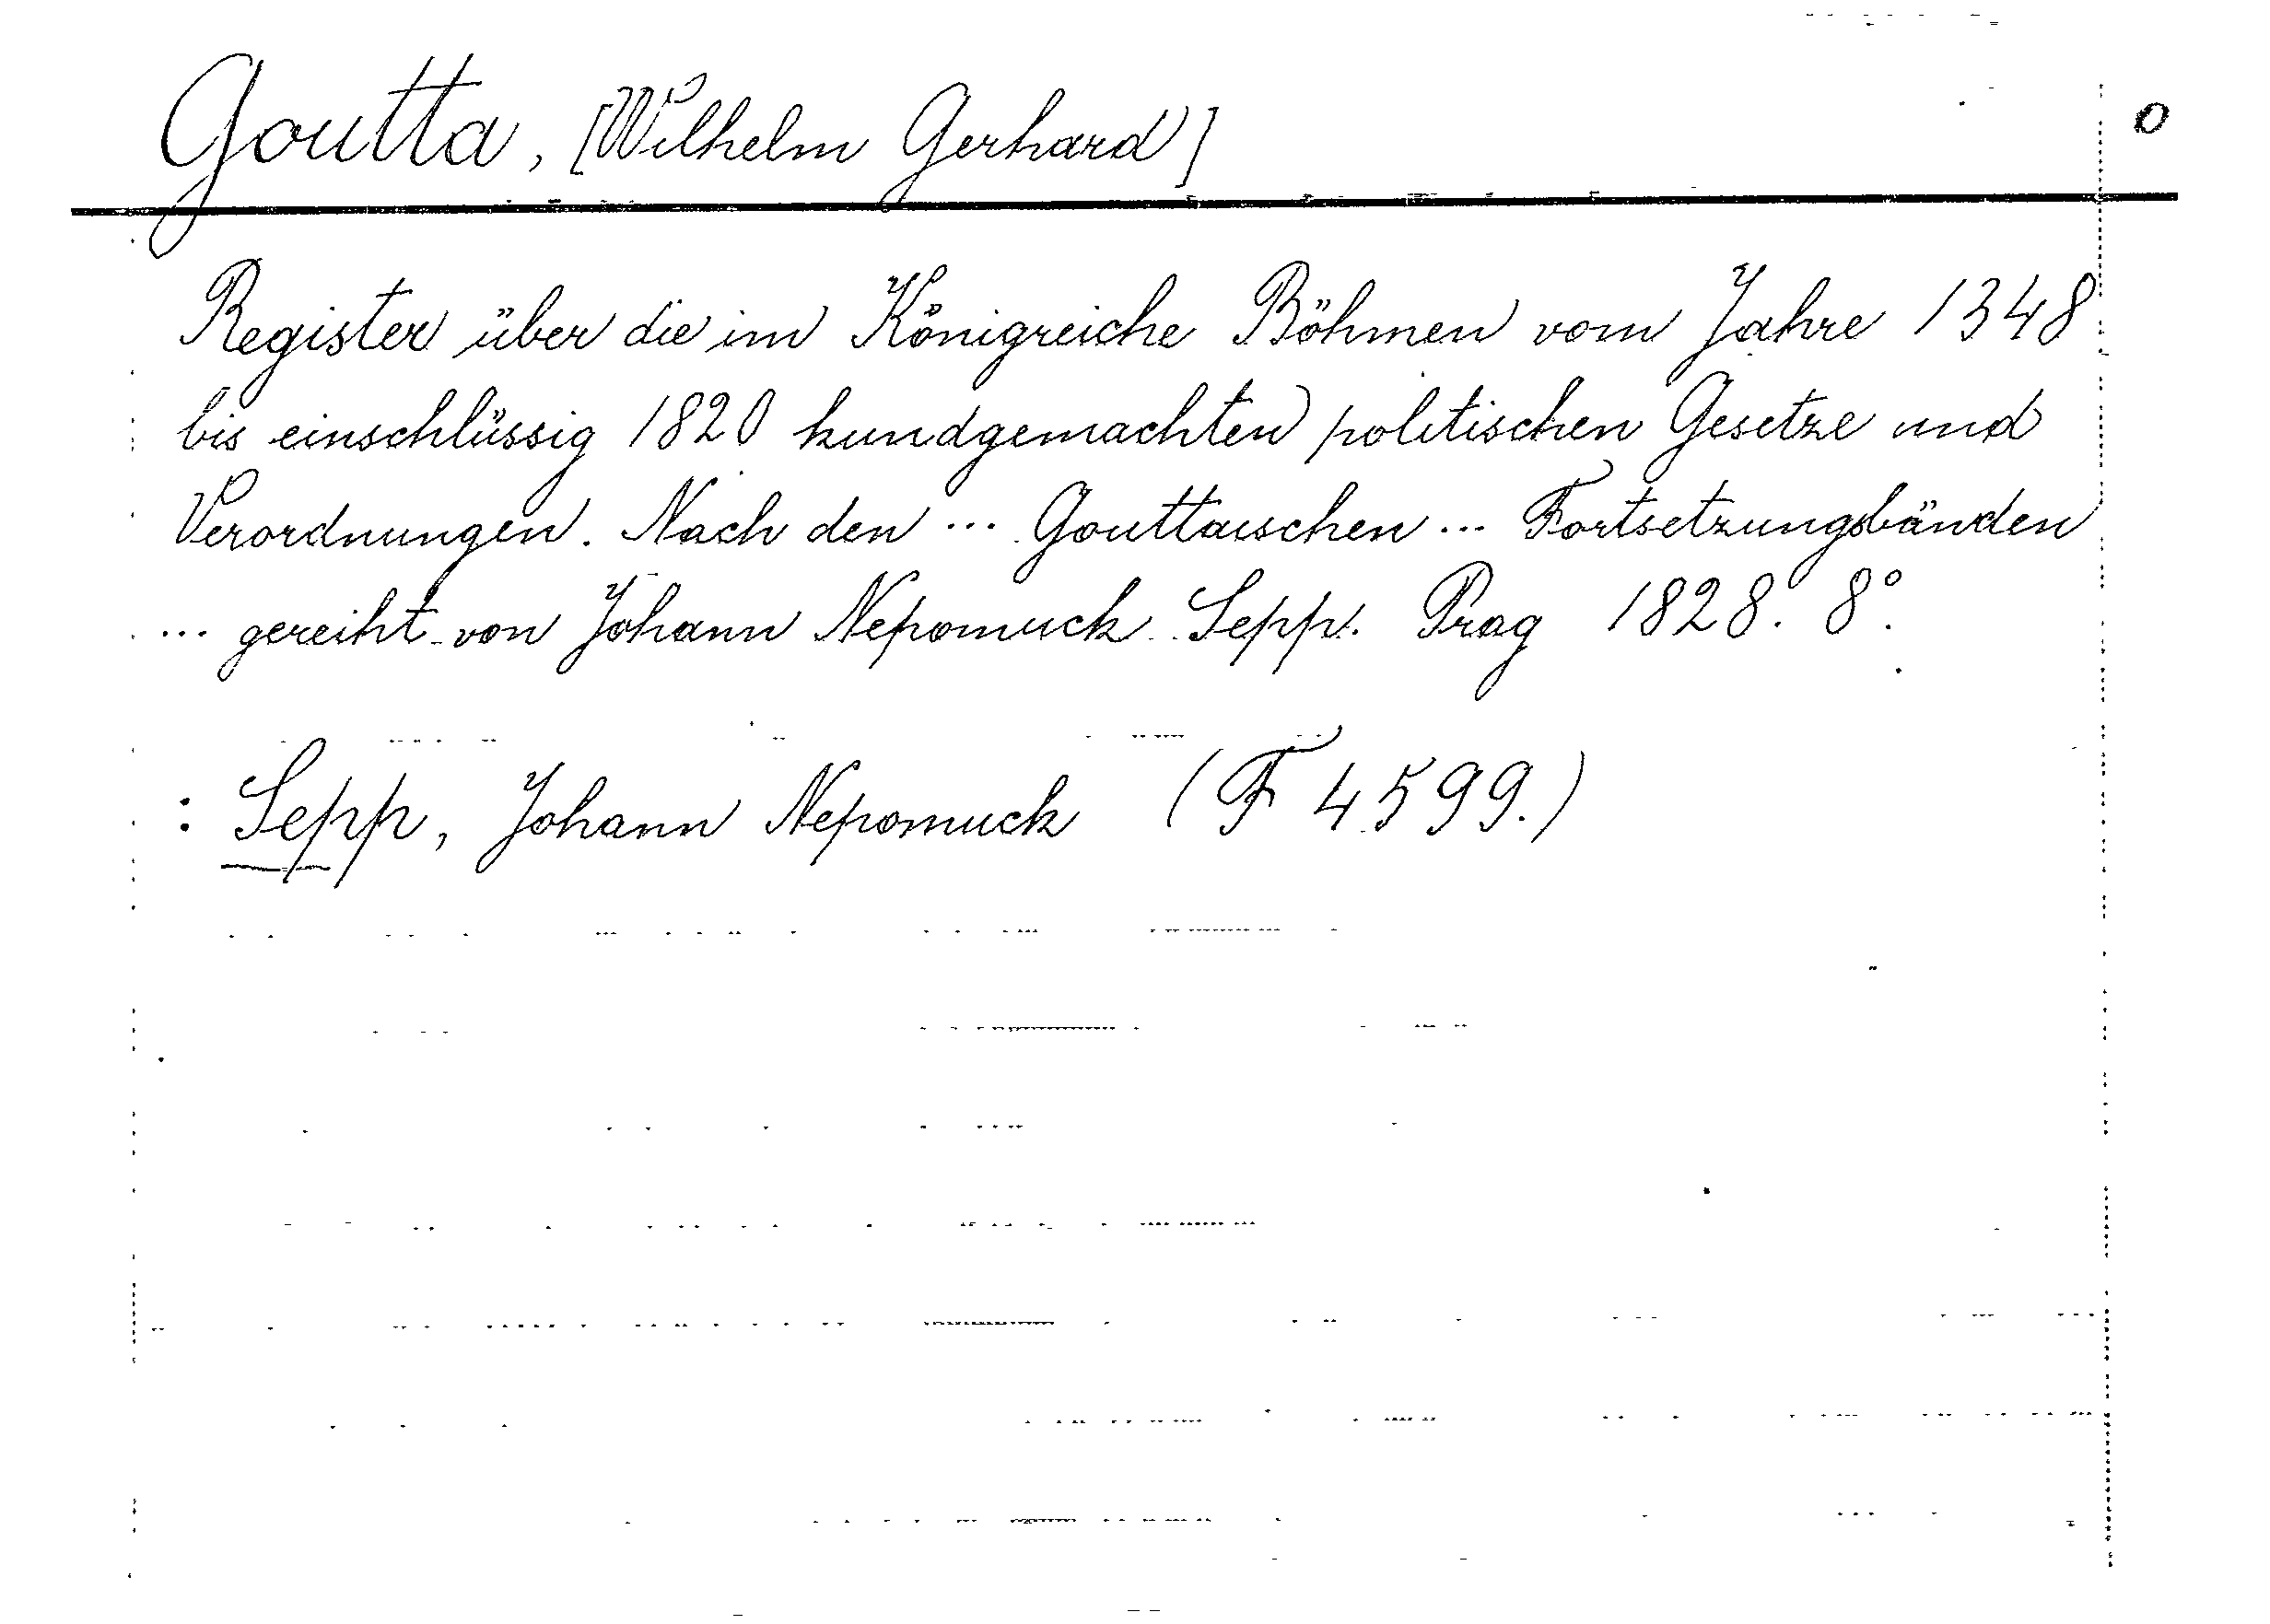 Goutta, [Wilhelm Gerhard] 0
Register über die im Königreiche Böhmen vom Jahre 1348
bis einschlüssig 1820 kundgemachten politischen Gesetze und
Verordnungen. Nach den ... Gouttaischen ... Fortsetzungsbänden
... gereiht von Johann Nepomuck Sepp. Prag 1828. 8°.
: Sepp, Johann Nepomuck (F 4599.)